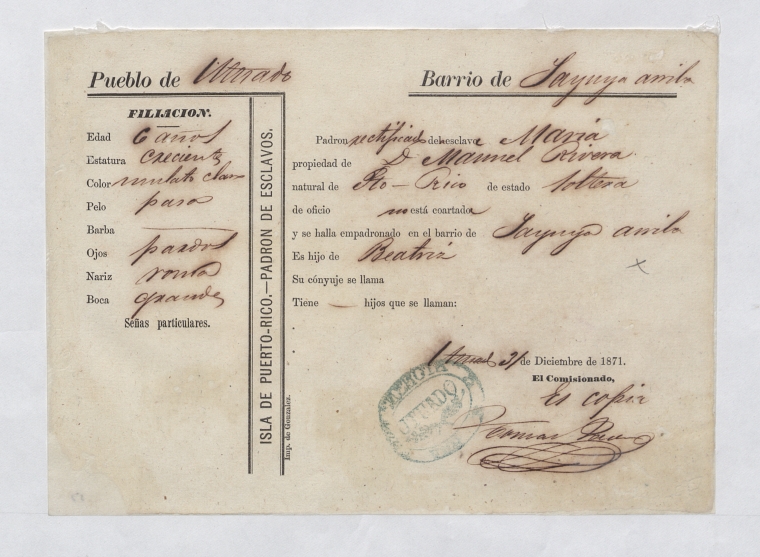 Pueblo de Utuado
Barrio de Jayuya arriba
FILIACION.
Edad 6 años
Estatura creciente
Color mulato claro
Pelo pasa
Barba
Ojos pardos
Nariz
Boca grande
Señas particulares.
ISLA DE PUERTO-RICO.—PADRON DE ESCLAVOS.
Imp. de Gonzalez.
Padron rectificado del esclava María
propiedad de D. Manuel Rivera
natural de Pto-Rico de estado soltera
de oficio no está coartada
y se halla empadronado en el barrio de Jayuya arriba
Es hijo de Beatriz
Su cónyuje se llama
Tiene — hijos que se llaman:
Utuado 31 de Diciembre de 1871.
El Comisionado,
Es copia
UTUADO